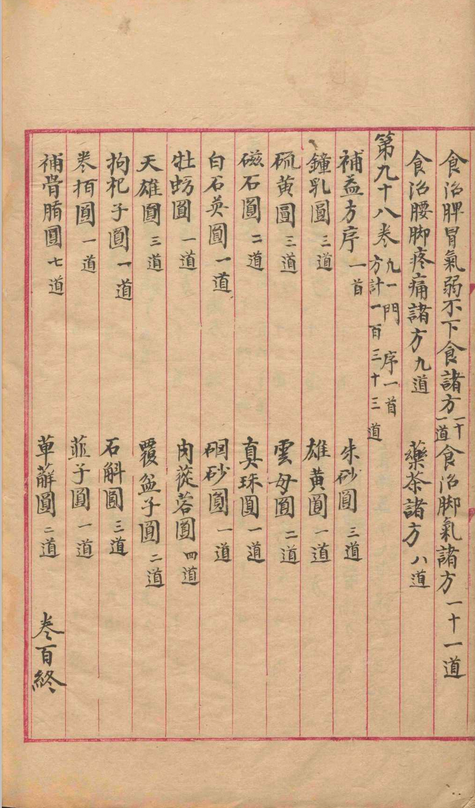 食治脾胃氣弱不下食諸方一十道 食治脚氣諸方一十一道
食治腰脚疼痛諸方九道 藥茶諸方八道
第九十八卷 凡一門 序一首 方計一百三十三道
補益方序一首 朱砂圓三道
鐘乳圓三道 雄黃圓一道
硫黃圓三道 雲母圓二道
磁石圓二道 真珠圓一道
白石英圓一道 硇砂圓一道
牡蠣圓一道 肉蓯蓉圓四道
天雄圓三道 覆盆子圓二道
枸杞子圓一道 石斛圓三道
卷栢圓一道 韮子圓一道
補骨脂圓七道 萆薢圓二道 卷百終